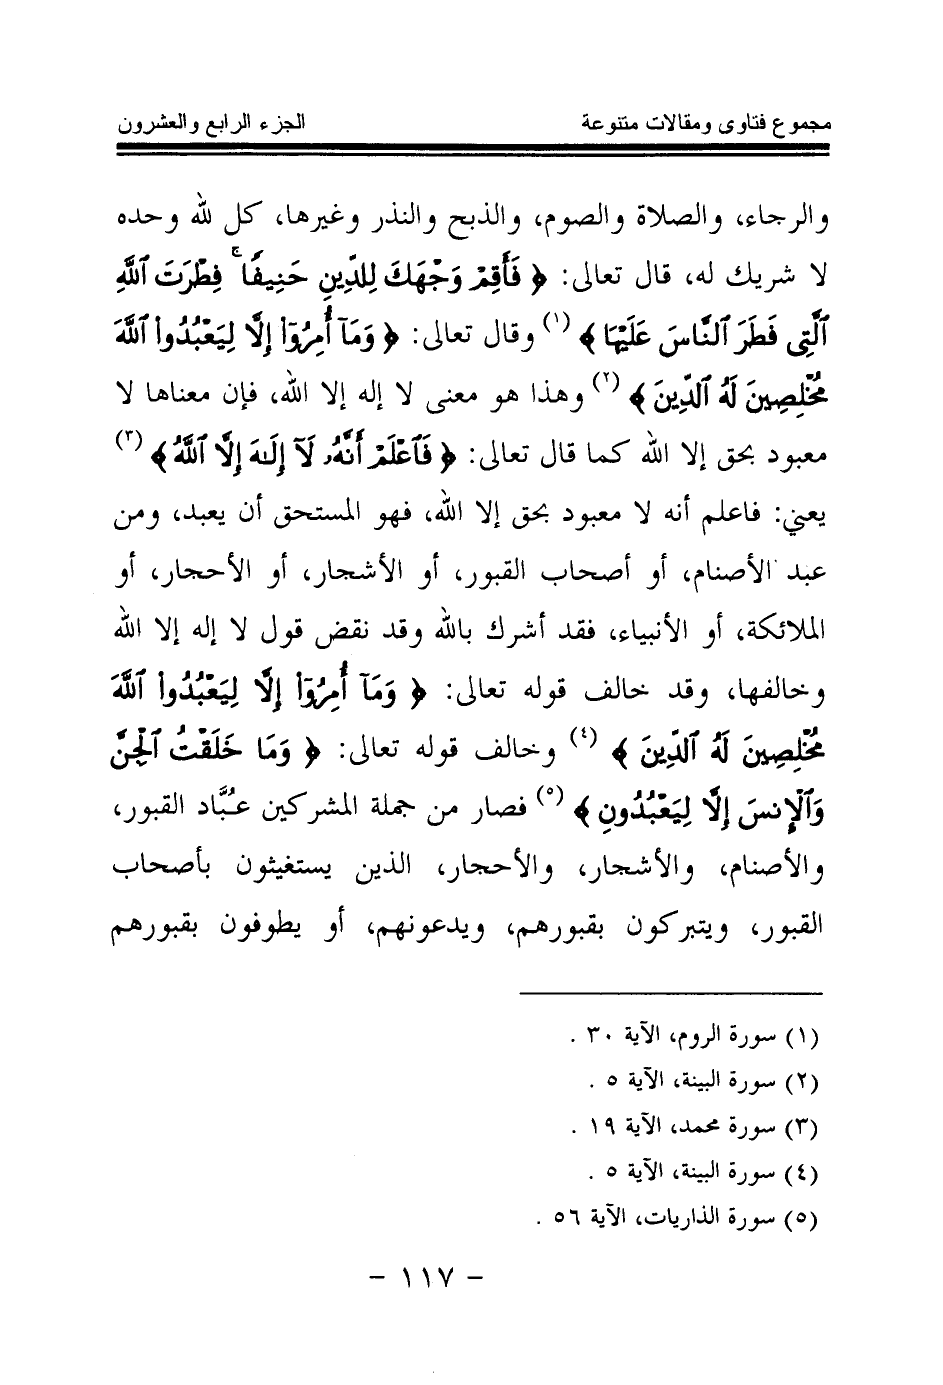 مجموع فتاوى ومقالات متنوعة
الجزء الرابع والعشرون
والرجاء، والصلاة والصوم، والذبح والنذر وغيرها، كل لله وحده
لا شريك له، قال تعالى: ﴿ فَأَقِمْ وَجْهَكَ لِلدِّينِ حَنِيفًا ۚ فِطْرَتَ ٱللَّهِ
ٱلَّتِى فَطَرَ ٱلنَّاسَ عَلَيْهَا ﴾ (١) وقال تعالى: ﴿ وَمَآ أُمِرُوٓا۟ إِلَّا لِيَعْبُدُوا۟ ٱللَّهَ
مُخْلِصِينَ لَهُ ٱلدِّينَ ﴾ (٢) وهذا هو معنى لا إله إلا الله، فإن معناها لا
معبود بحق إلا الله كما قال تعالى: ﴿ فَٱعْلَمْ أَنَّهُۥ لَآ إِلَٰهَ إِلَّا ٱللَّهُ ﴾ (٣)
يعني: فاعلم أنه لا معبود بحق إلا الله، فهو المستحق أن يعبد، ومن
عبد الأصنام، أو أصحاب القبور، أو الأشجار، أو الأحجار، أو
الملائكة، أو الأنبياء، فقد أشرك بالله وقد نقض قول لا إله إلا الله
وخالفها، وقد خالف قوله تعالى: ﴿ وَمَآ أُمِرُوٓا۟ إِلَّا لِيَعْبُدُوا۟ ٱللَّهَ
مُخْلِصِينَ لَهُ ٱلدِّينَ ﴾ (٤) وخالف قوله تعالى: ﴿ وَمَا خَلَقْتُ ٱلْجِنَّ
وَٱلْإِنسَ إِلَّا لِيَعْبُدُونِ ﴾ (٥) فصار من جملة المشركين عُبَّاد القبور،
والأصنام، والأشجار، والأحجار، الذين يستغيثون بأصحاب
القبور، ويتبركون بقبورهم، ويدعونهم، أو يطوفون بقبورهم
(١) سورة الروم، الآية ٣٠ .
(٢) سورة البينة، الآية ٥ .
(٣) سورة محمد، الآية ١٩ .
(٤) سورة البينة، الآية ٥ .
(٥) سورة الذاريات، الآية ٥٦ .
- ١١٧ -